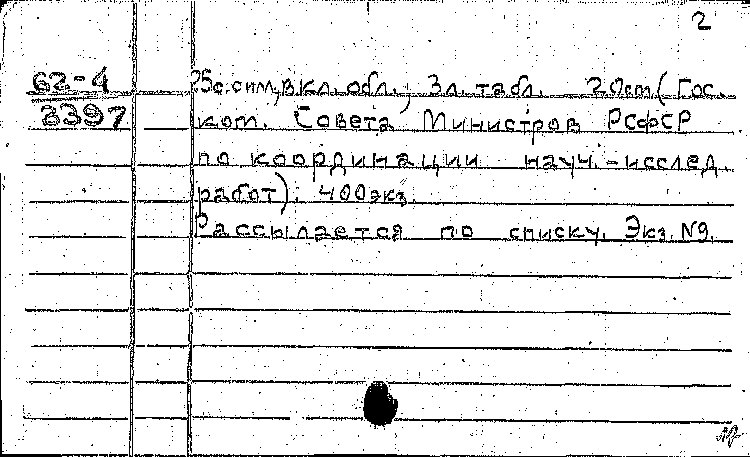 2
62-4
3397
25с. с илл., вкл. обл.; 3л. табл. 20см (Гос.
ком. Совета Министров РСФСР
по координации науч.-исслед.
работ). 400экз.
Рассылается по списку. Экз. №9.